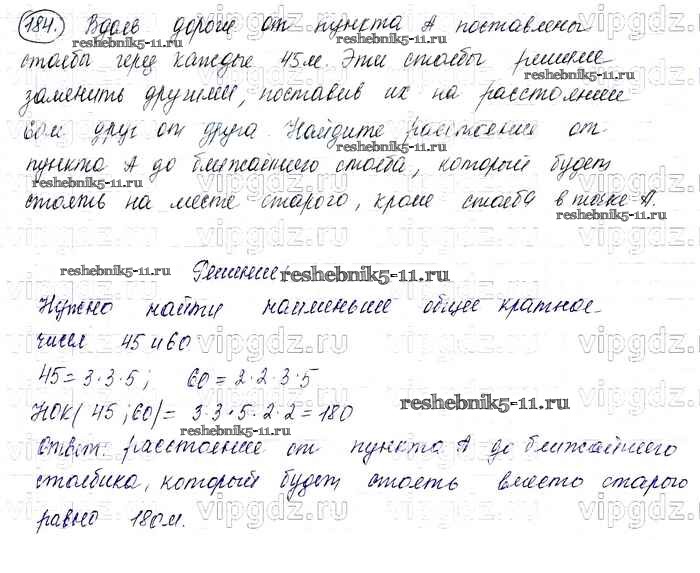 184. Вдоль дороги от пункта А поставлены
столбы через каждые 45м. Эти столбы решили
заменить другими, поставив их на расстоянии
60м друг от друга. Найдите расстояние от
пункта А до ближайшего столба, который будет
стоять на месте старого, кроме столба в точке А.
Решение
Нужно найти наименьшее общее кратное
чисел 45 и 60
45=3·3·5; 60=2·2·3·5
НОК(45;60)=3·3·5·2·2=180
Ответ: расстояние от пункта А до ближайшего
столбика, который будет стоять вместо старого
равно 180м.
reshebnik5-11.ru
vipgdz.ru